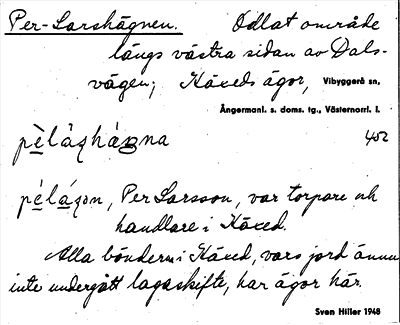 Per-Larshägnen. Odlat område
längs västra sidan av Dals-
vägen; Häxeds ägor, Vibyggerå sn,
Ångermanl. s. doms. tg., Västernorrl. l.
452
Per Larsson, var torpare och
handlare i Häxed.
Alla bönderna i Häxed, vars jord ännu
inte undergått lagaskifte, har ägor här.
Sven Hiller 1948